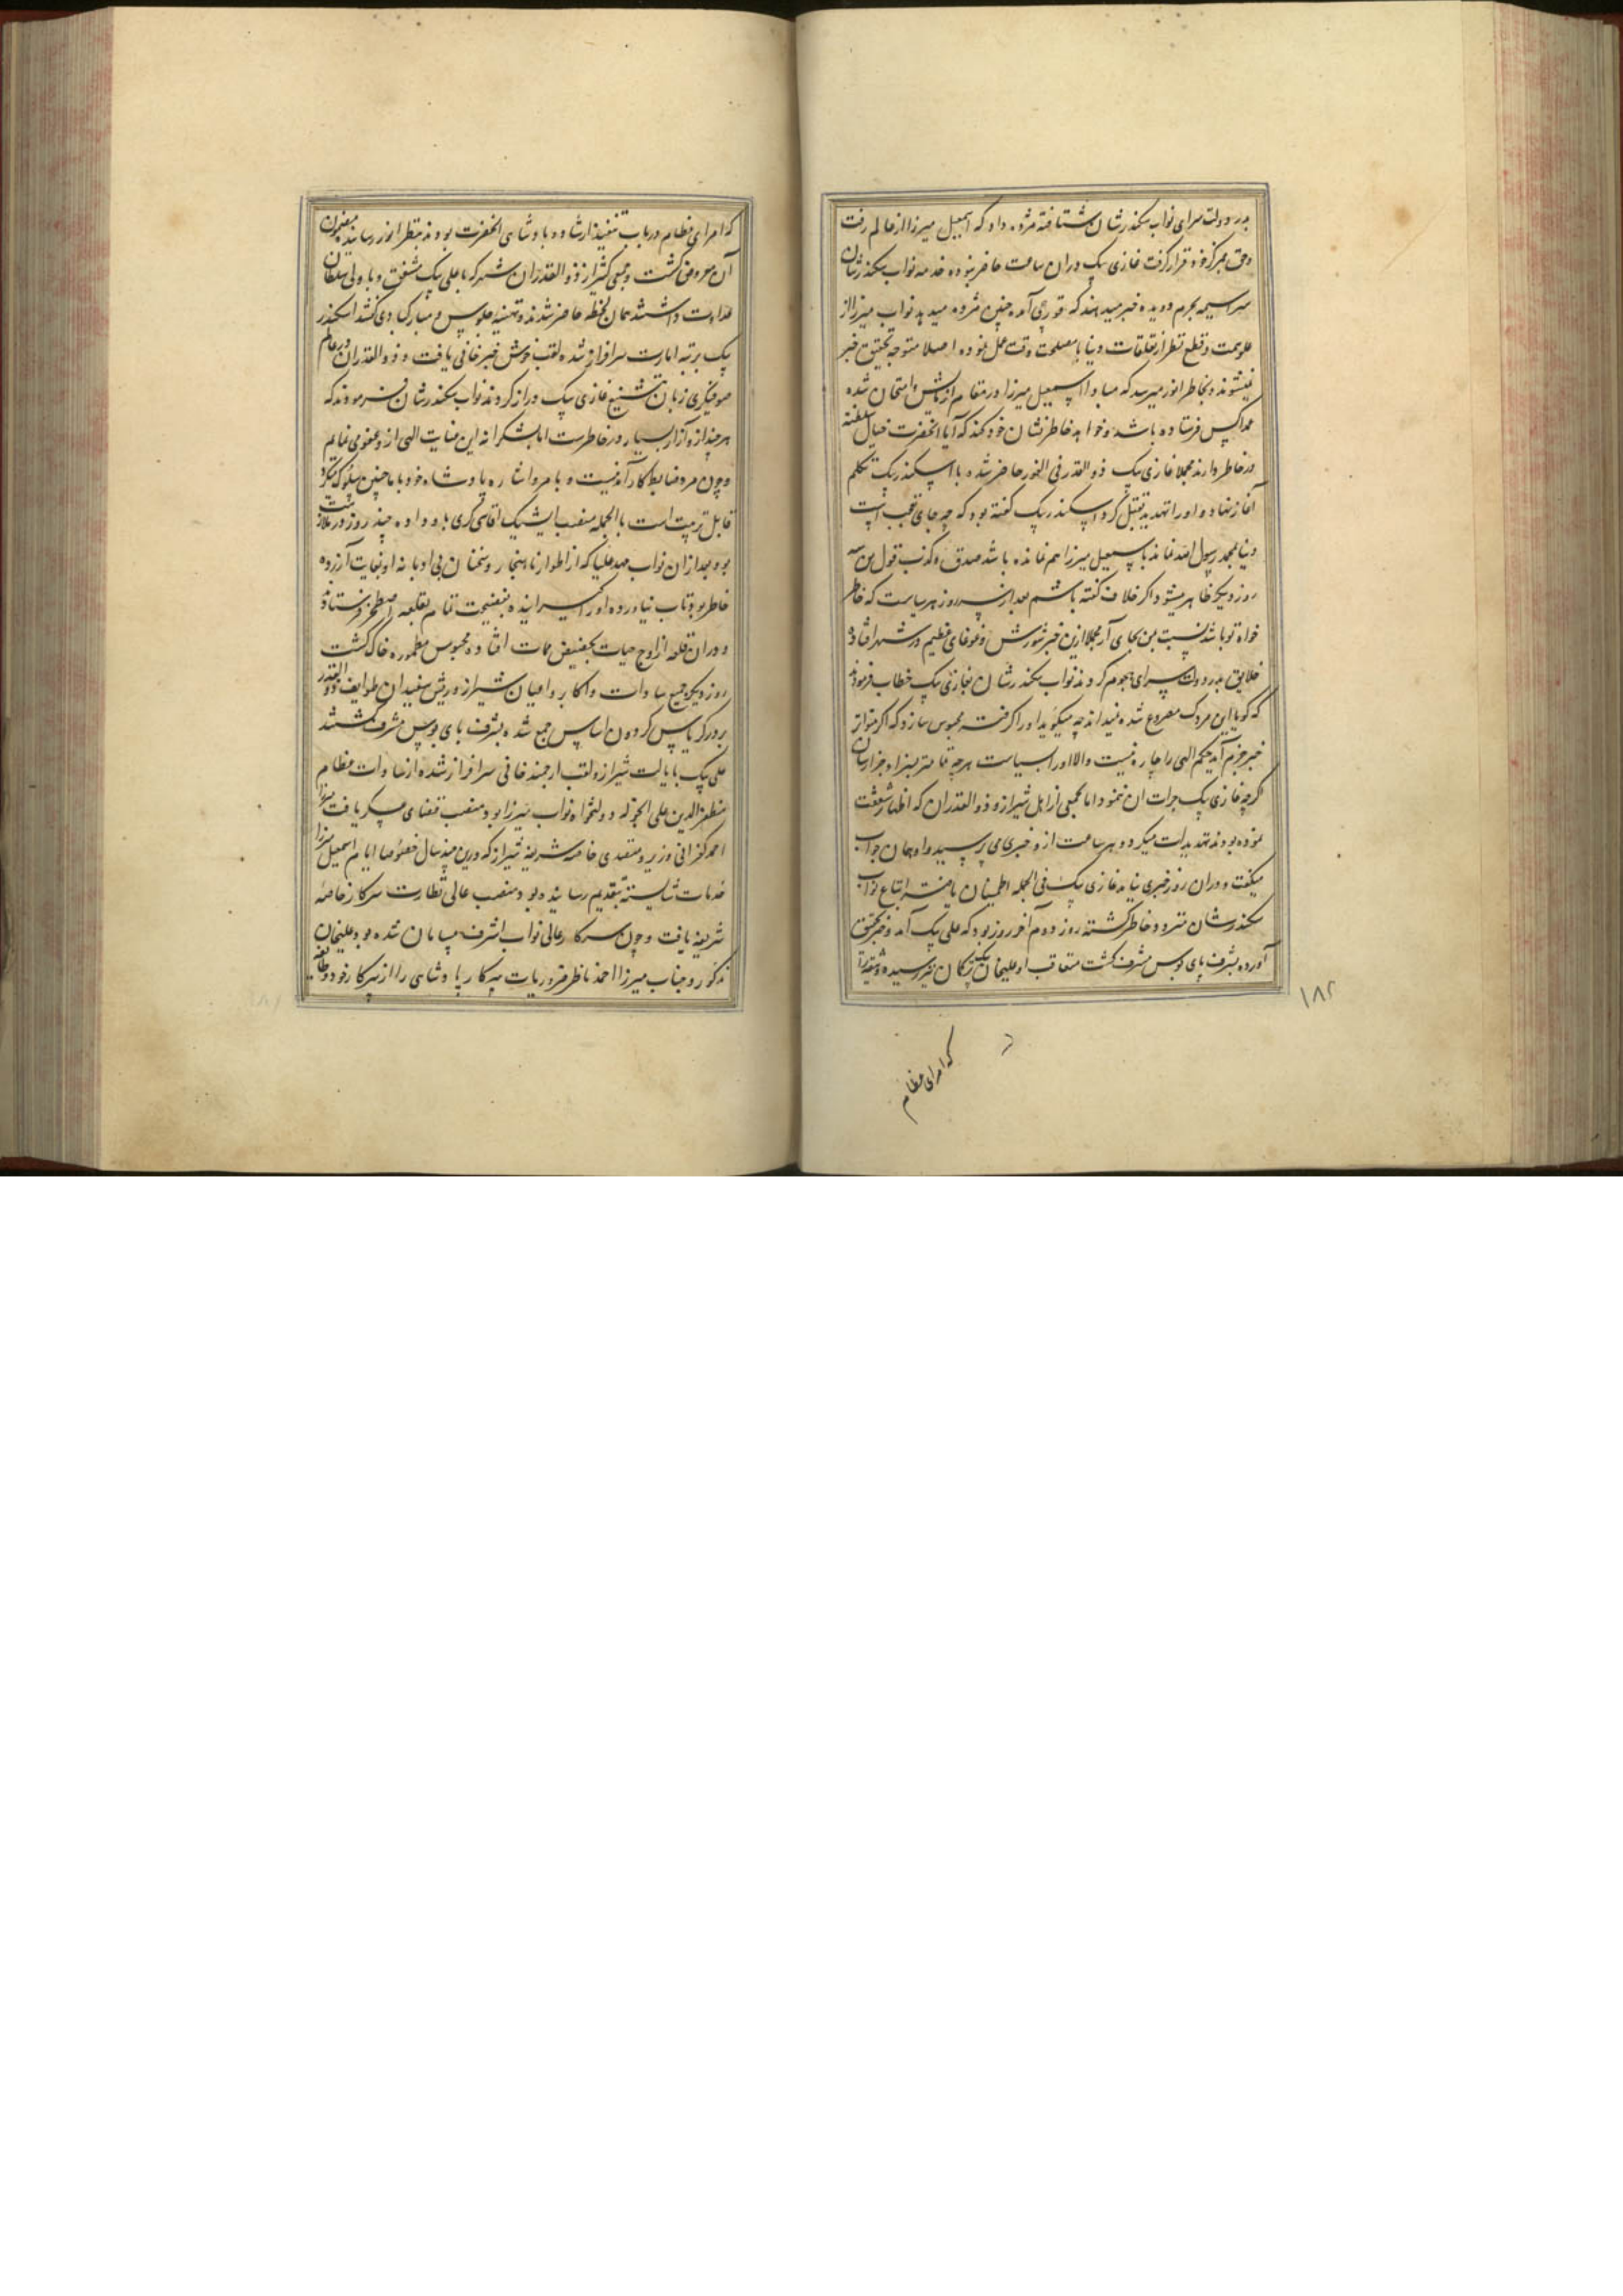 بدر دولت سرای نواب سکندرشان شتافته مژده داد که اسمعیل میرزا از عالم رفت
وحق بمرکز خود قرار گرفت غازی بیک در ان ساعت حاضر نبوده خدمه نواب سکندرشان
سراسیمه بحرم دویده خبر میدهند که قورچی آمده چنین مژده میدهد نواب میرزا از
علو همت و قطع نظر از تعلقات دنیا بمصلحت وقت عمل نموده اصلا متوجه تحقیق خبر
نمیشوند و بخاطر انور میرسد که مبادا اسمعیل میرزا در مقام آزمایش و امتحان شده
عمدا کس فرستاده باشد و خواهد خاطرنشان خود کند که آیا آنحضرت خیال سلطنت
در خاطر دارند مجملا غازی بیک ذوالقدر فی الفور حاضر شده با اسکندر بیک تکلم
آغاز نهاده او را تهدید بقتل کرد اسکندر بیک گفته بود که چه جای تعجب است
دنیا بمحمد رسول الله نماند باسمعیل میرزا هم نمانده باشد صدق و کذب قول من سه
روز دیگر ظاهر میشود اگر خلاف گفته باشم بعد از سه روز هر سیاست که خاطر
خواه تو باشد نسبت بمن بجای آر مجملا ازین خبر شورش و غوغای عظیم در شهر افتاده
خلایق بدر دولت سرای هجوم کردند نواب سکندرشان بغازی بیک خطاب فرمودند
که گویا این مردک مصروع شده نمیداند چه میگوید او را گرفته محبوس سازد که اگر متواتر
خبر جزم آید حکم الهی را چاره نیست والا او را بسیاست هرچه تمامتر بسزا و جزا رسان
اگرچه غازی بیک جرات ان ننمود اما بجمعی از اهل شیراز و ذوالقدران که اظهار شعف
نموده بودند تهدید است میکرد و هر ساعت ازو خبری می پرسید و او همان جواب
میگفت و در ان روز خبری نیامد غازی بیک فی الجمله اطمینان یافته اتباع نواب
سکندرشان متردد خاطر گشته روز دوم آخر روز بود که علی بیک آمد و خبر محقق
آورده بشرف پای بوس مشرف گشت متعاقب او علیخان بیک ترکمان نیز رسیده
۱۸۲
که امرای عظام
که امرای عظام در باب تنفیذ ارشاد و پادشاهی آنحضرت بودند بنظر انور رسانیده مضمون
آن معروض گشت و جمعی کثیر از ذوالقدران شهر که با علی بیک متفق و با ولی سلطان
عداوت داشتند همان لحظه حاضر شدند و تهنیه جلوس و مبارکبادی گفتند اسکندر
بیک برتبه امارت سرافراز شده لقب خوش خبر خانی یافت و ذوالقدران در عالم
صوفیگری زبان تشنیع غازی بیک دراز کردند نواب سکندرشان فرمودند که
هرچند ازو آزار بسیار در خاطرست اما بشکرانه این عنایت الهی ازو عفو می نمایم
و چون مرد ضابط کارآمدنیست و بامر و اشاره پادشاه خود با ما چنین سلوک میکرد
قابل تربیت است بالجمله منصب ایشیک اقاسی گری باو داده چند روز در ملازمت
بود بعد از ان نواب مهد علیا که از اطوار ناهنجار و سخنان بی ادبانه او بغایت آزرده
خاطر بود تاب نیاورده او را گیرانیده بفضیحت تمام بقلعه اصطخر فرستاد
و در ان قلعه از اوج حیات بحضیض ممات افتاده محبوس مطموره خاک گشت
روز دیگر جمیع سادات و اکابر و اعیان شیراز و ریش سفیدان طوایف ذوالقدر
بر در کریاس گردون اساس جمع شده بشرف پای بوس مشرف گشتند
علی بیک بایالت شیراز و لقب ارجمند خانی سرافراز شده از سادات عظام
مظفر الدین علی انجو که دولتخواه نواب میرزا بود منصب قضای عسکر یافت میرزا
احمد کفرانی وزیر و متصدی خاصه شریفه شیراز که درین چند سال خصوصا ایام اسمعیل میرزا
خدمات شایسته بتقدیم رسانیده بود منصب عالی نظارت سرکار خاصه
شریفه یافت و چون سرکار عالی نواب اشرف بیسامان شده بود علیخان
مذکور و جناب میرزا احمد ناظر ضروریات سرکار پادشاهی را از سرکار خود و طایفه